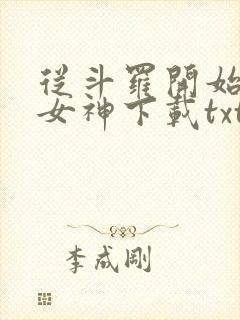 從斗羅開始
女神下載txt
李成剛